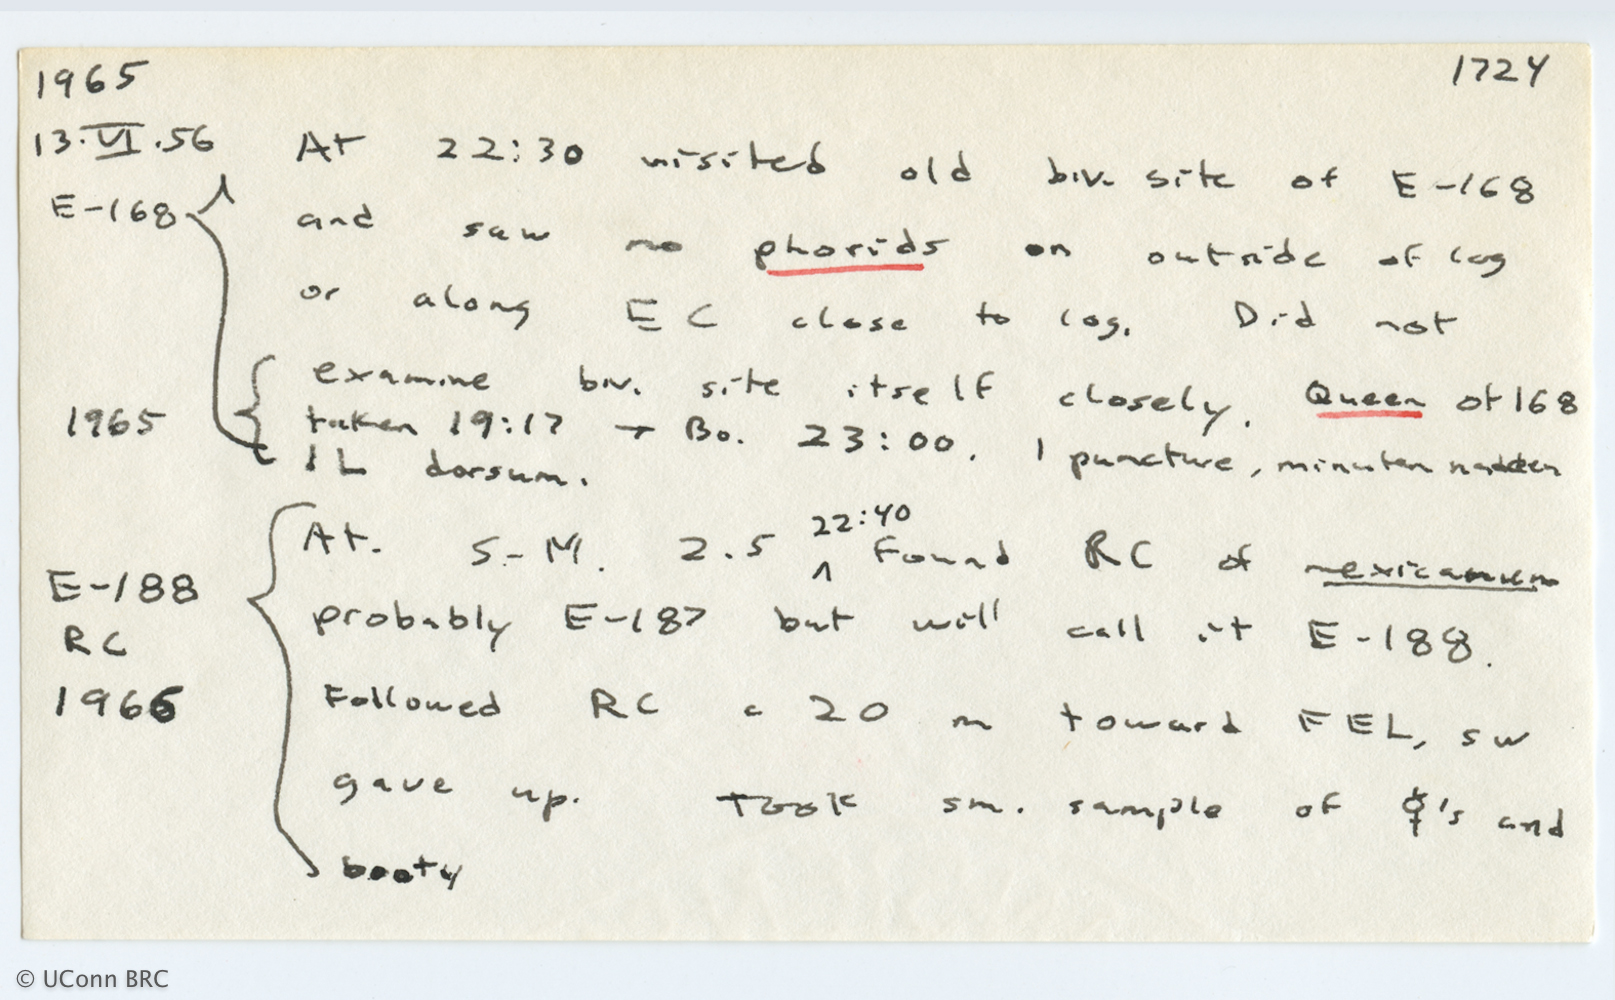 1965 1724
13.VI.56 At 22:30 visited old biv. site of E-168
E-168 and saw no phorids on outside of log
or along EC close to log. Did not
examine biv. site itself closely. Queen of 168
1965 taken 19:17 → Bo. 23:00. 1 puncture, minuten
1 L dorsum.
At. S-M. 2.5 22:40 Found RC of mexicanum
E-188 probably E-187 but will call it E-188.
RC
1966 Followed RC c 20 m toward FEL, sw
gave up. Took sm. sample of ☿'s and
booty
© UConn BRC